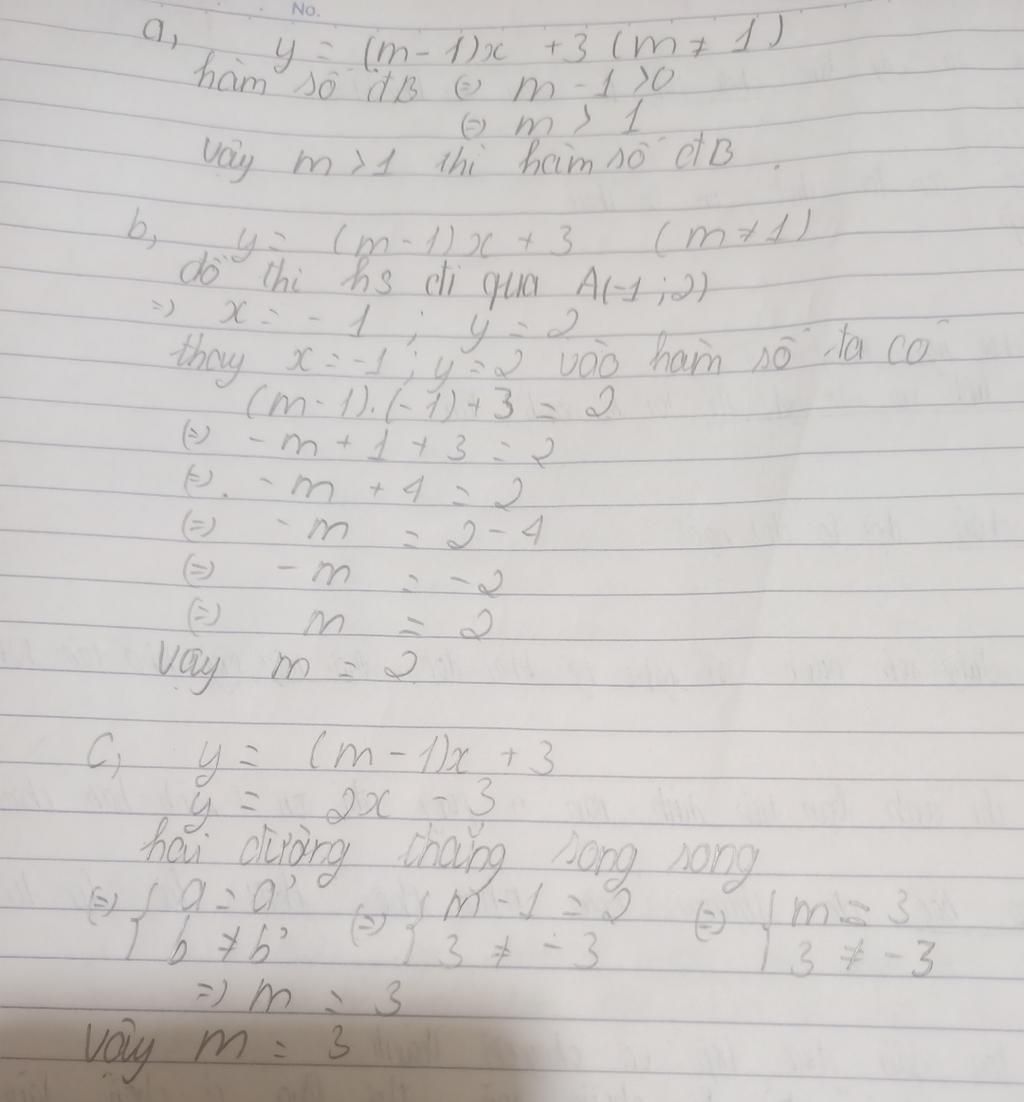 No.
a, y = (m-1)x + 3 (m ≠ 1)
hàm số đB (=) m - 1 > 0
(=) m > 1
Vậy m > 1 thì hàm số đB.
b, y = (m-1)x + 3 (m ≠ 1)
đồ thị hs đi qua A(-1;2)
=) x = -1 ; y = 2
thay x = -1 ; y = 2 vào hàm số ta có
(m-1).(-1)+3 = 2
(=) -m + 1 + 3 = 2
(=) -m + 4 = 2
(=) -m = 2-4
(=) -m = -2
(=) m = 2
Vậy m = 2
c, y = (m-1)x + 3
y = 2x - 3
hai đường thẳng song song
(=) { a = a' (=) { m-1 = 2 (=) { m = 3
b ≠ b' 3 ≠ -3 3 ≠ -3
=) m = 3
Vậy m = 3